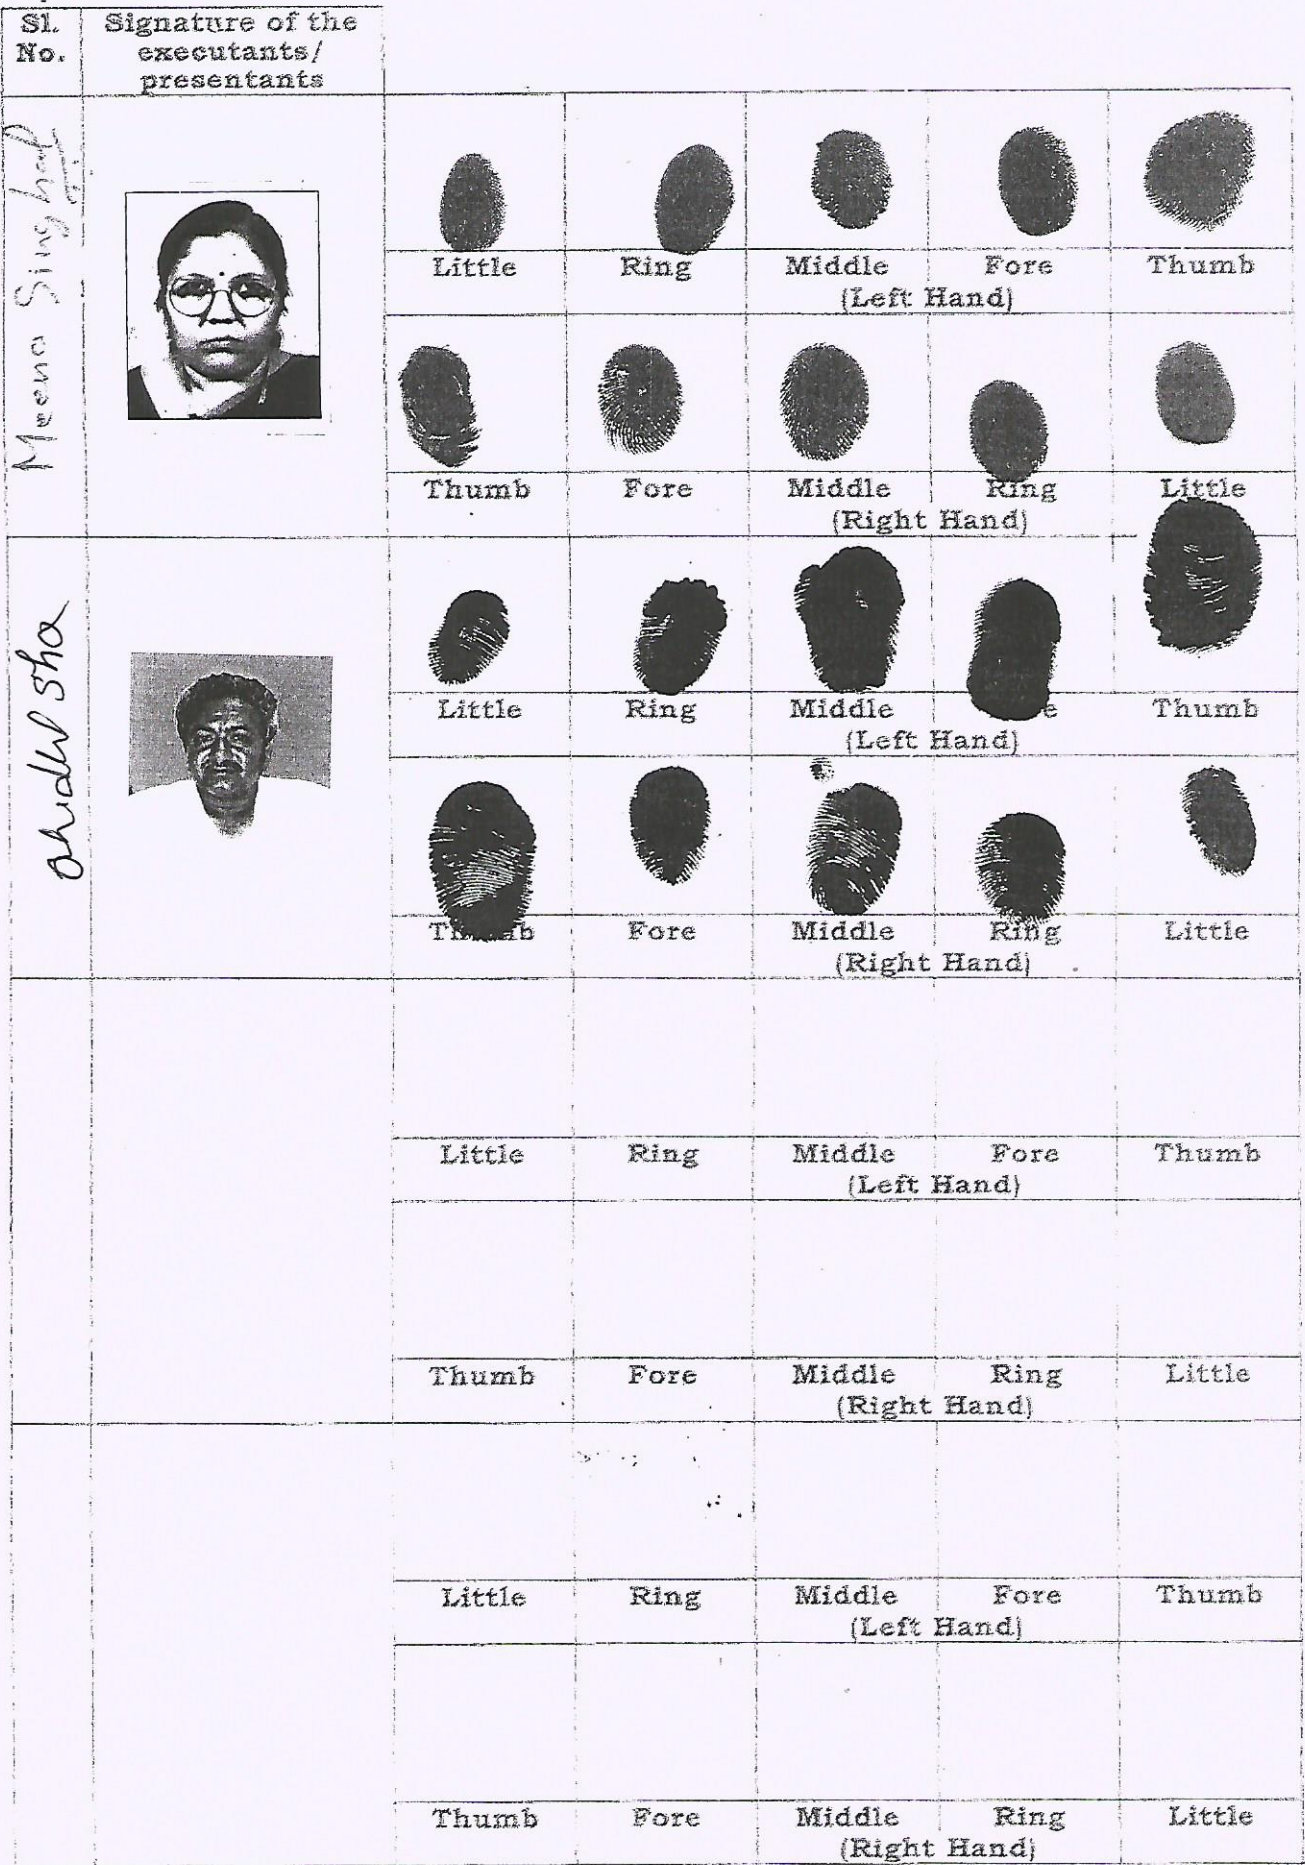 Sl. No.
Signature of the executants/ presentants
Meena Singhal
Little Ring Middle Fore Thumb
(Left Hand)
Thumb Fore Middle Ring Little
(Right Hand)
sha
Little Ring Middle Thumb
(Left Hand)
Thumb Fore Middle Ring Little
(Right Hand)
Little Ring Middle Fore Thumb
(Left Hand)
Thumb Fore Middle Ring Little
(Right Hand)
Little Ring Middle Fore Thumb
(Left Hand)
Thumb Fore Middle Ring Little
(Right Hand)